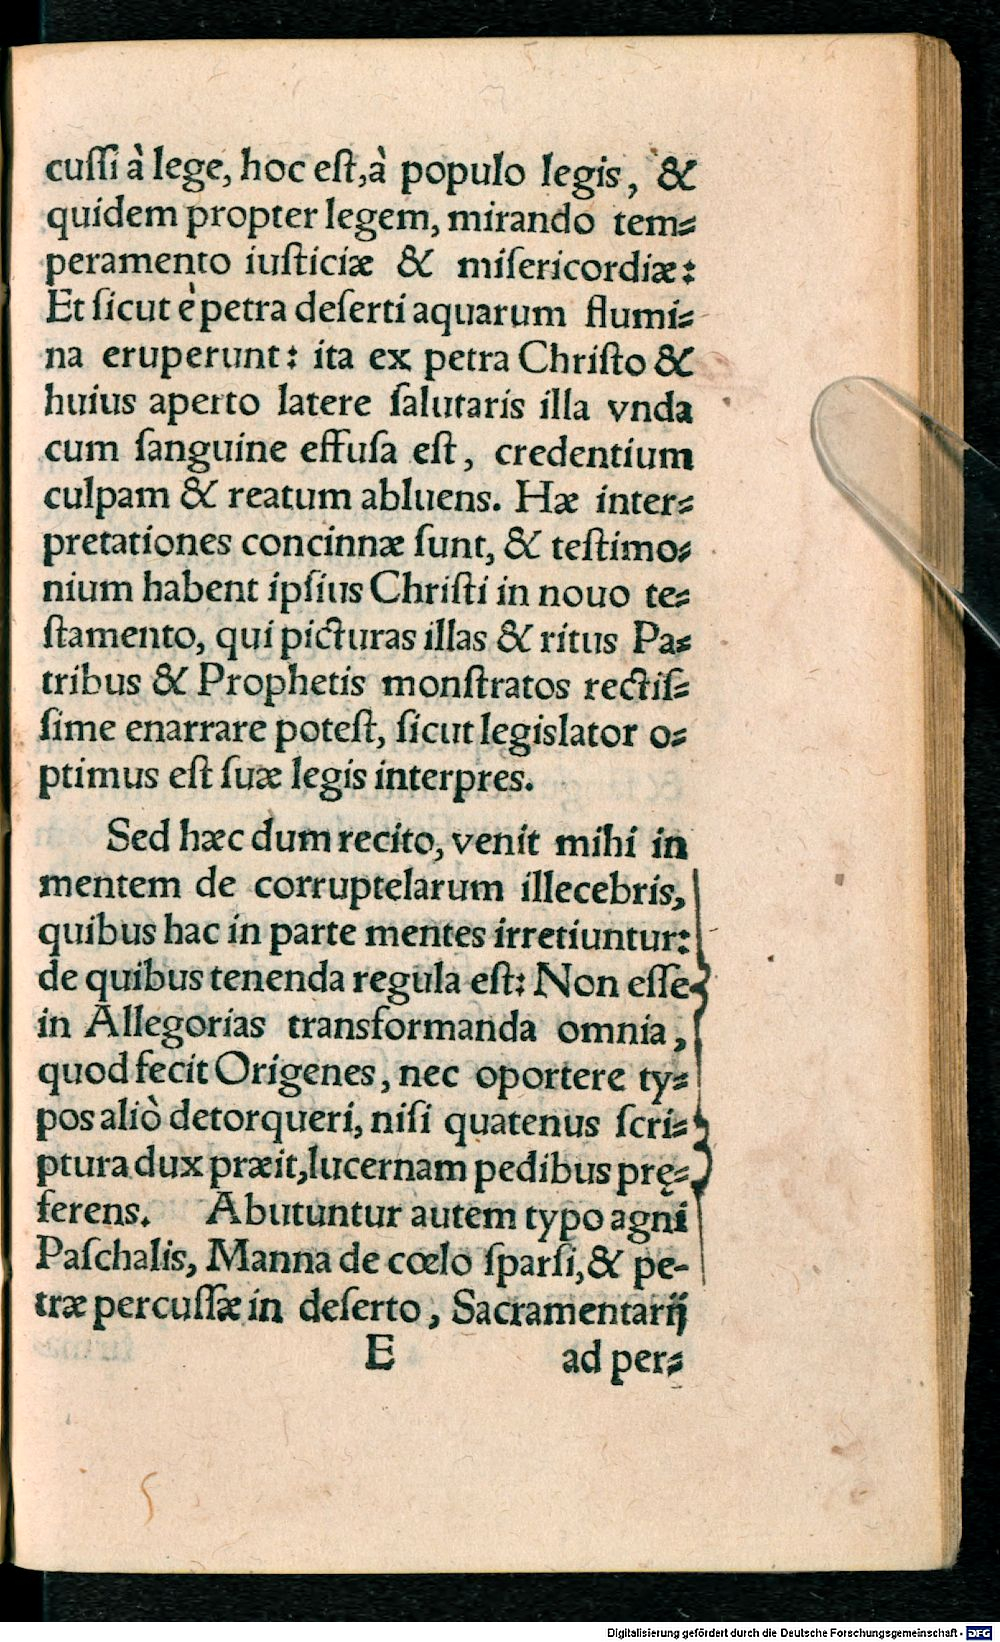 cuſſi à lege, hoc eſt, à populo legis, &
quidem propter legem, mirando tem⸗
peramento iuſticiæ & miſericordiæ:
Et ſicut è petra deſerti aquarum flumi⸗
na eruperunt: ita ex petra Chriſto &
huius aperto latere ſalutaris illa vnda
cum ſanguine effuſa eſt, credentium
culpam & reatum abluens. Hæ inter⸗
pretationes concinnæ ſunt, & teſtimo⸗
nium habent ipſius Chriſti in nouo te⸗
ſtamento, qui picturas illas & ritus Pa⸗
tribus & Prophetis monſtratos rectiſ⸗
ſime enarrare poteſt, ſicut legislator o⸗
ptimus eſt ſuæ legis interpres.
Sed hæc dum recito, venit mihi in
mentem de corruptelarum illecebris,
quibus hac in parte mentes irretiuntur:
de quibus tenenda regula eſt: Non eſſe
in Allegorias transformanda omnia,
quod fecit Origenes, nec oportere ty⸗
pos aliò detorqueri, niſi quatenus ſcri⸗
ptura dux præit, lucernam pedibus prę⸗
ferens. Abutuntur autem typo agni
Paſchalis, Manna de cœlo ſparſi, & pe-
træ percuſſæ in deſerto, Sacramentarij
E ad per⸗
Digitalisierung gefördert durch die Deutsche Forschungsgemeinschaft - DFG